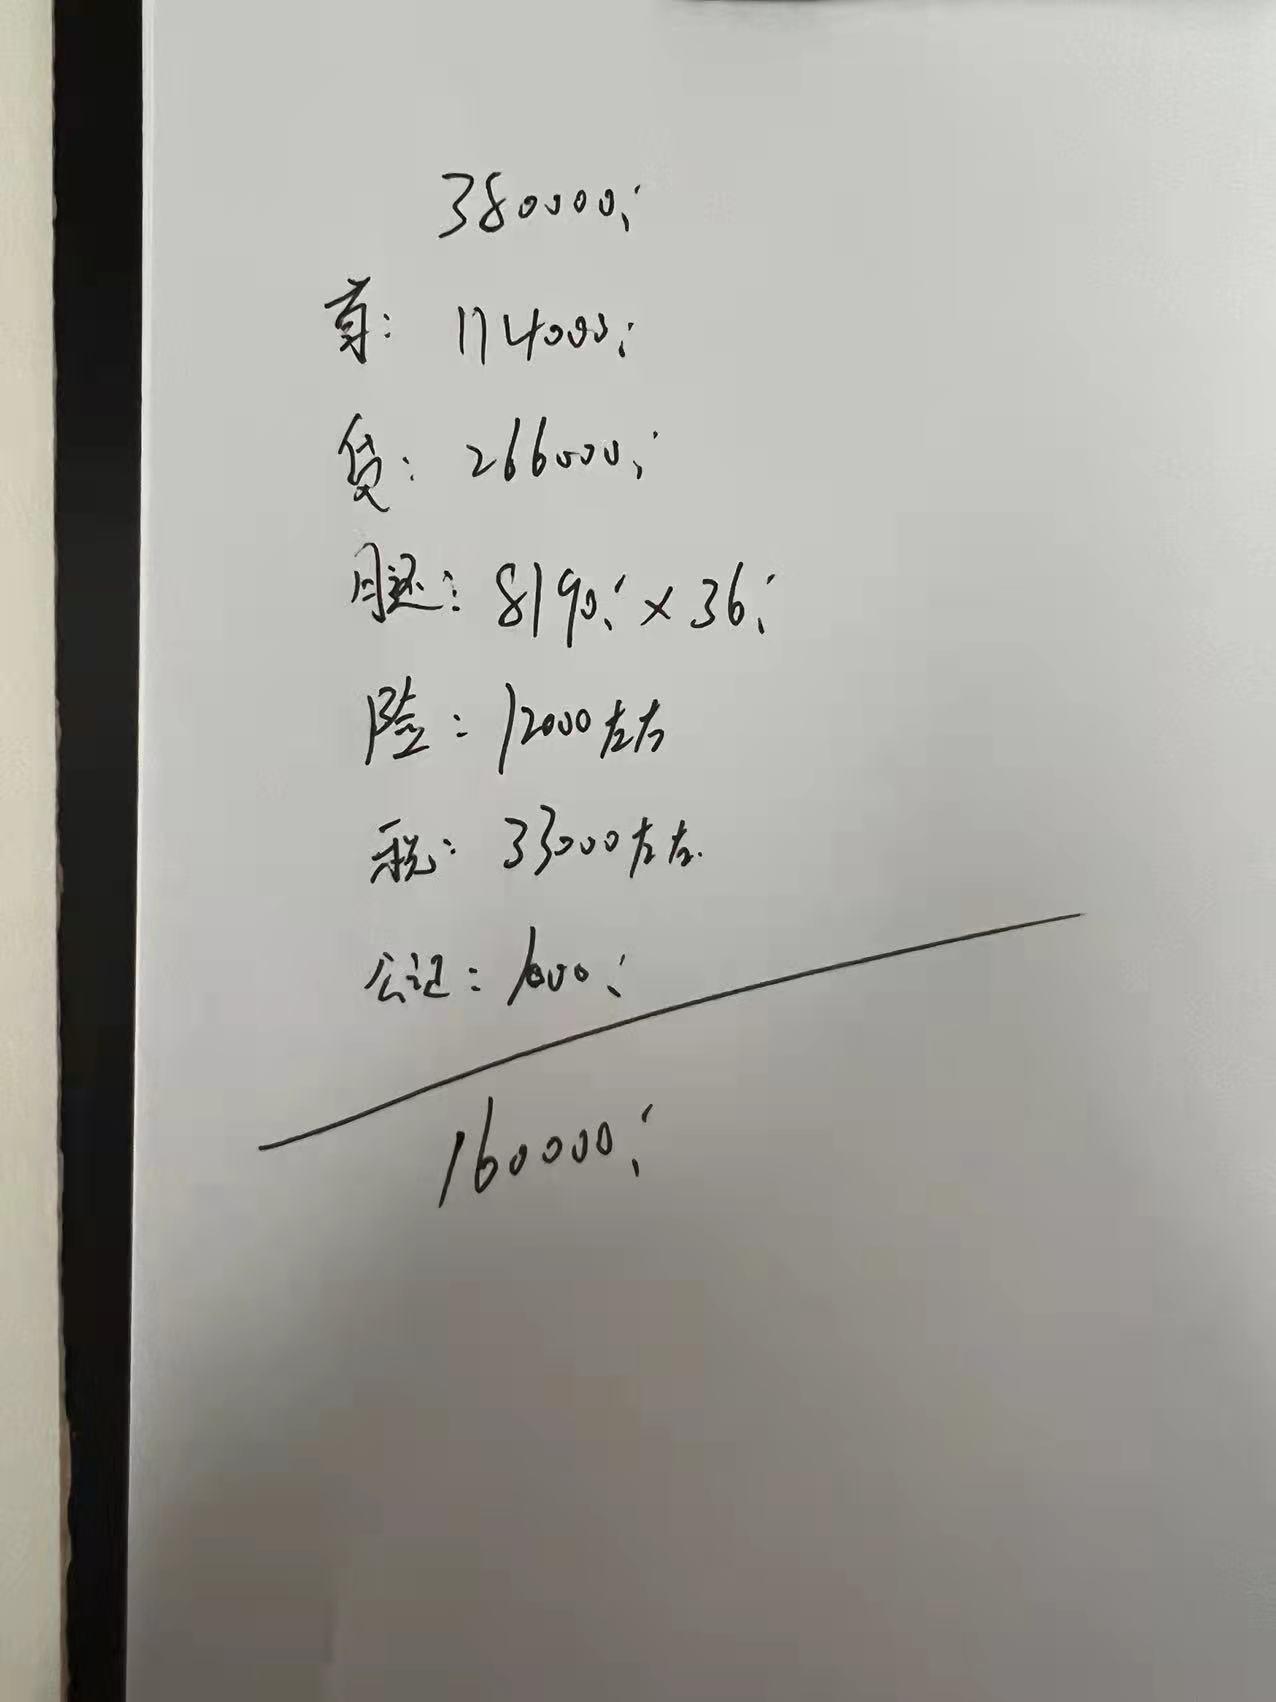 380000.
首: 114000.
贷: 266000.
月还: 8190. × 36.
险: 12000左右
税: 33000左右.
公证: 1000.
160000.